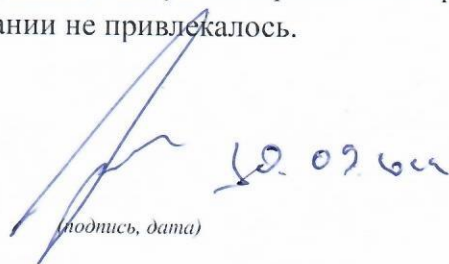 ании не привлекалось.
30.09.
(подпись, дата)